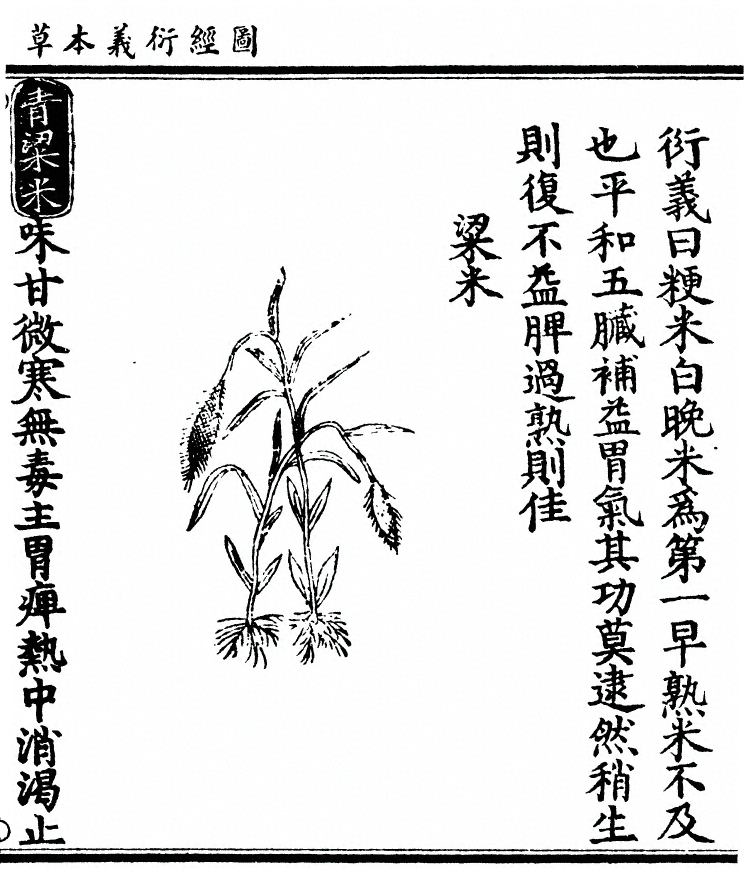 圖經衍義本草
衍義曰粳米白晚米爲第一早熟米不及
也平和五臟補益胃氣其功莫逮然稍生
則復不益脾過熟則佳
粱米
青粱米味甘微寒無毒主胃痺熱中消渴止